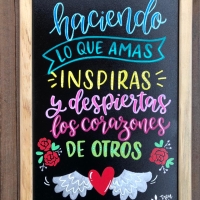 haciendo
LO QUE AMAS
INSPIRAS
y despiertas
los corazones
DE OTROS